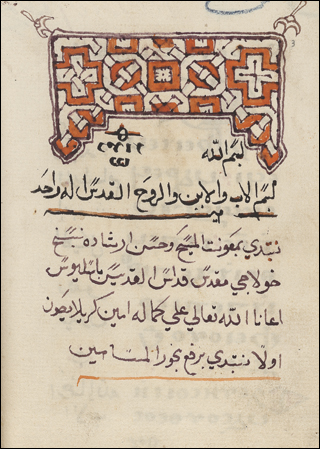 3
بسم الله
بسم الاب والابن والروح القدس اله واحد
نبتدي بمعونت المسيح وحسن ارشاده بنسخ
خولاجي مقدس قداس القديس باسليوس
اعانا الله تعالي علي كماله امين كرياليصون
اولا نبتدي برفع بخور المسا امين